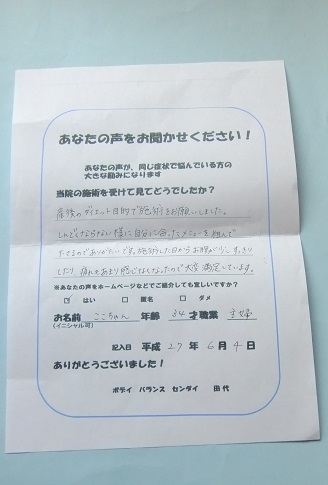 あなたの声をお聞かせください！
あなたの声が、同じ症状で悩んでいる方の
大きな励みになります
当院の施術を受けて見てどうでしたか？
産後のダイエット目的で施術をお願いしました。
しんどくならない様に自分に合ったメニューを組んで
下さるのでありがたいです。施術した日からお腹がスッキリ
したり、疲れもあまり感じなくなったので大変満足しています。
※あなたの声をホームページなどでご紹介しても宜しいですか？
☑ はい □ 匿名 □ ダメ
お名前 ここちゃん 年齢 34 才 職業 主婦
（イニシャル可）
記入日 平成 27 年 6 月 4 日
ありがとうございました！
ボディ バランス センダイ 田代